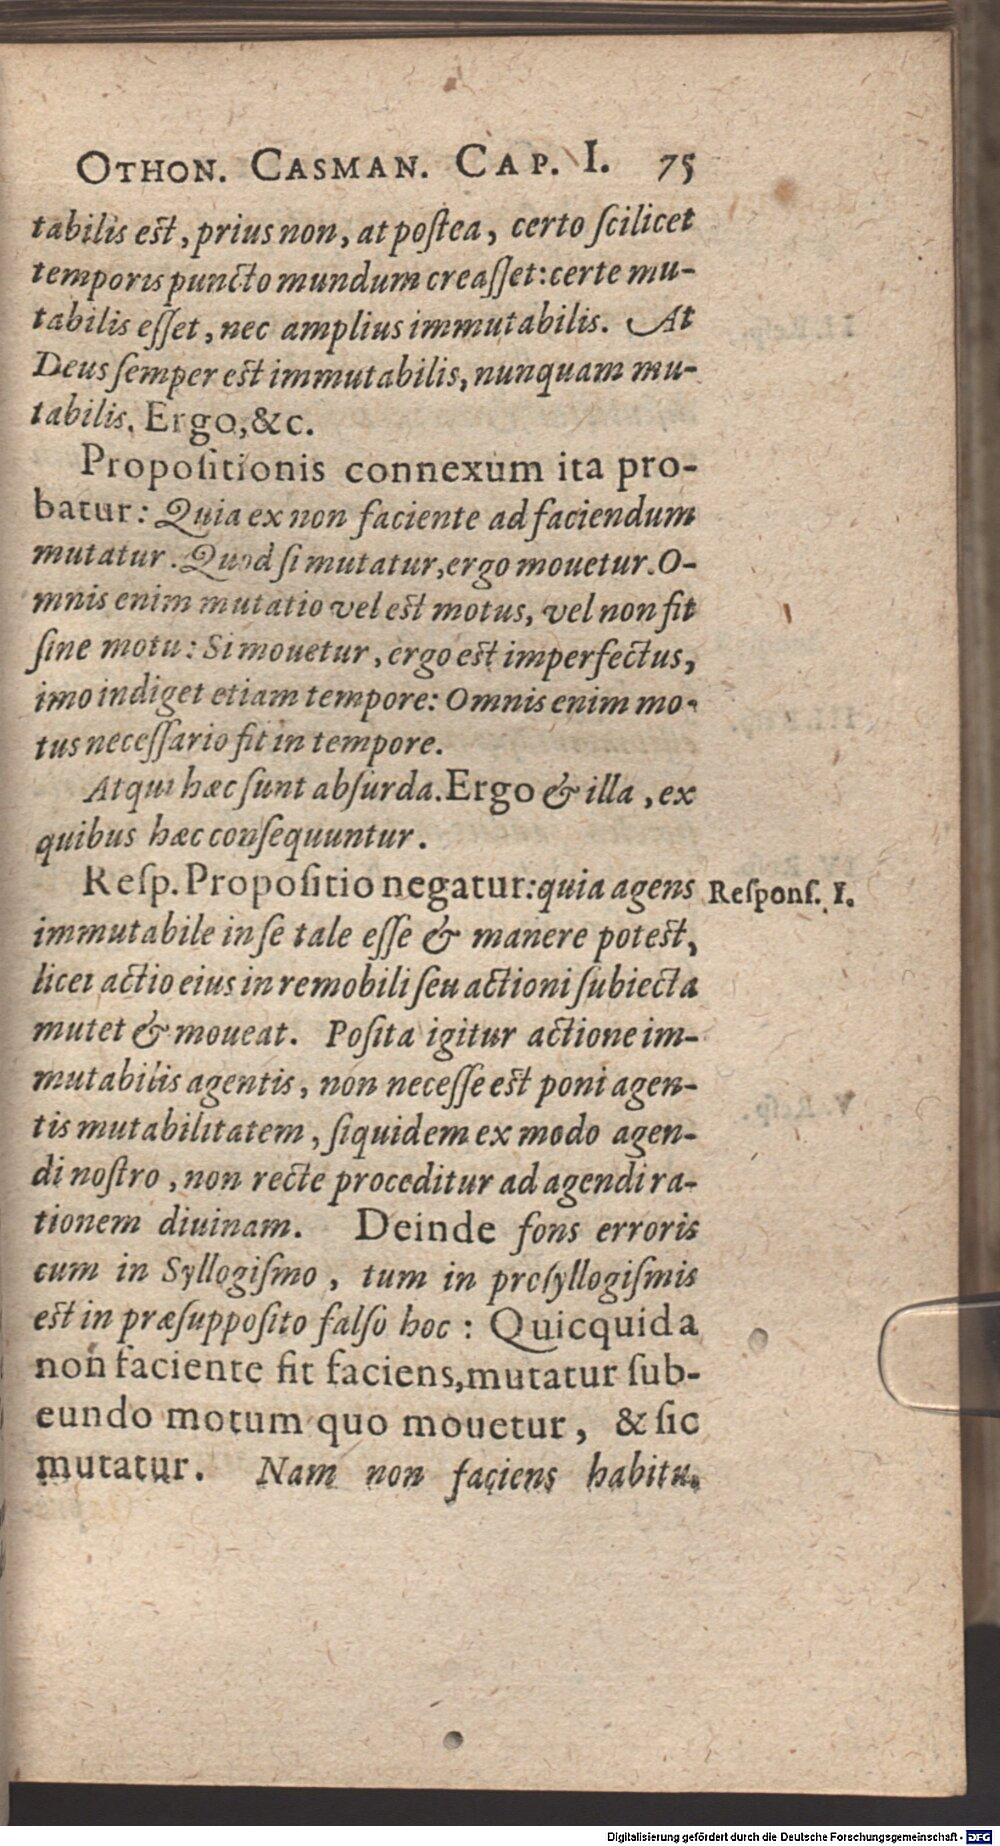 OTHON. CASMAN. CAP. I. 75
tabilis est, prius non, at poſtea, certo ſcilicet
temporis puncto mundum creaſſet: certe mu-
tabilis eſſet, nec amplius immutabilis. At
Deus ſemper est immutabilis, nunquam mu-
tabilis. Ergo, &c.
Propoſitionis connexum ita pro-
batur: Quia ex non faciente ad faciendum
mutatur. Quod ſi mutatur, ergo mouetur. O-
mnis enim mutatio vel est motus, vel non fit
ſine motu: Si mouetur, ergo est imperfectus,
imo indiget etiam tempore: Omnis enim mo-
tus neceſſario fit in tempore.
Atqui hæc ſunt abſurda. Ergo & illa, ex
quibus hæc conſequuntur.
Reſp. Propoſitio negatur: quia agens
Reſponſ. I.
immutabile in ſe tale eſſe & manere potest,
licet actio eius in re mobili ſeu actioni ſubiecta
mutet & moueat. Poſita igitur actione im-
mutabilis agentis, non neceſſe est poni agen-
tis mutabilitatem, ſiquidem ex modo agen-
di noſtro, non recte proceditur ad agendi ra-
tionem diuinam. Deinde fons erroris
cum in Syllogiſmo, tum in proſyllogiſmis
est in præſuppoſito falſo hoc: Quicquid a
non faciente fit faciens, mutatur ſub-
eundo motum quo mouetur, & ſic
mutatur. Nam non faciens habitu.
Digitalisierung gefördert durch die Deutsche Forschungsgemeinschaft - DFG